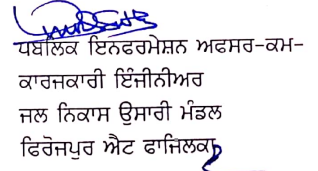 ਪਬਲਿਕ ਇਨਫਰਮੇਸ਼ਨ ਅਫਸਰ-ਕਮ-
ਕਾਰਜਕਾਰੀ ਇੰਜੀਨੀਅਰ
ਜਲ ਨਿਕਾਸ ਉਸਾਰੀ ਮੰਡਲ
ਫਿਰੋਜਪੁਰ ਐਟ ਫਾਜਿਲਕਾ